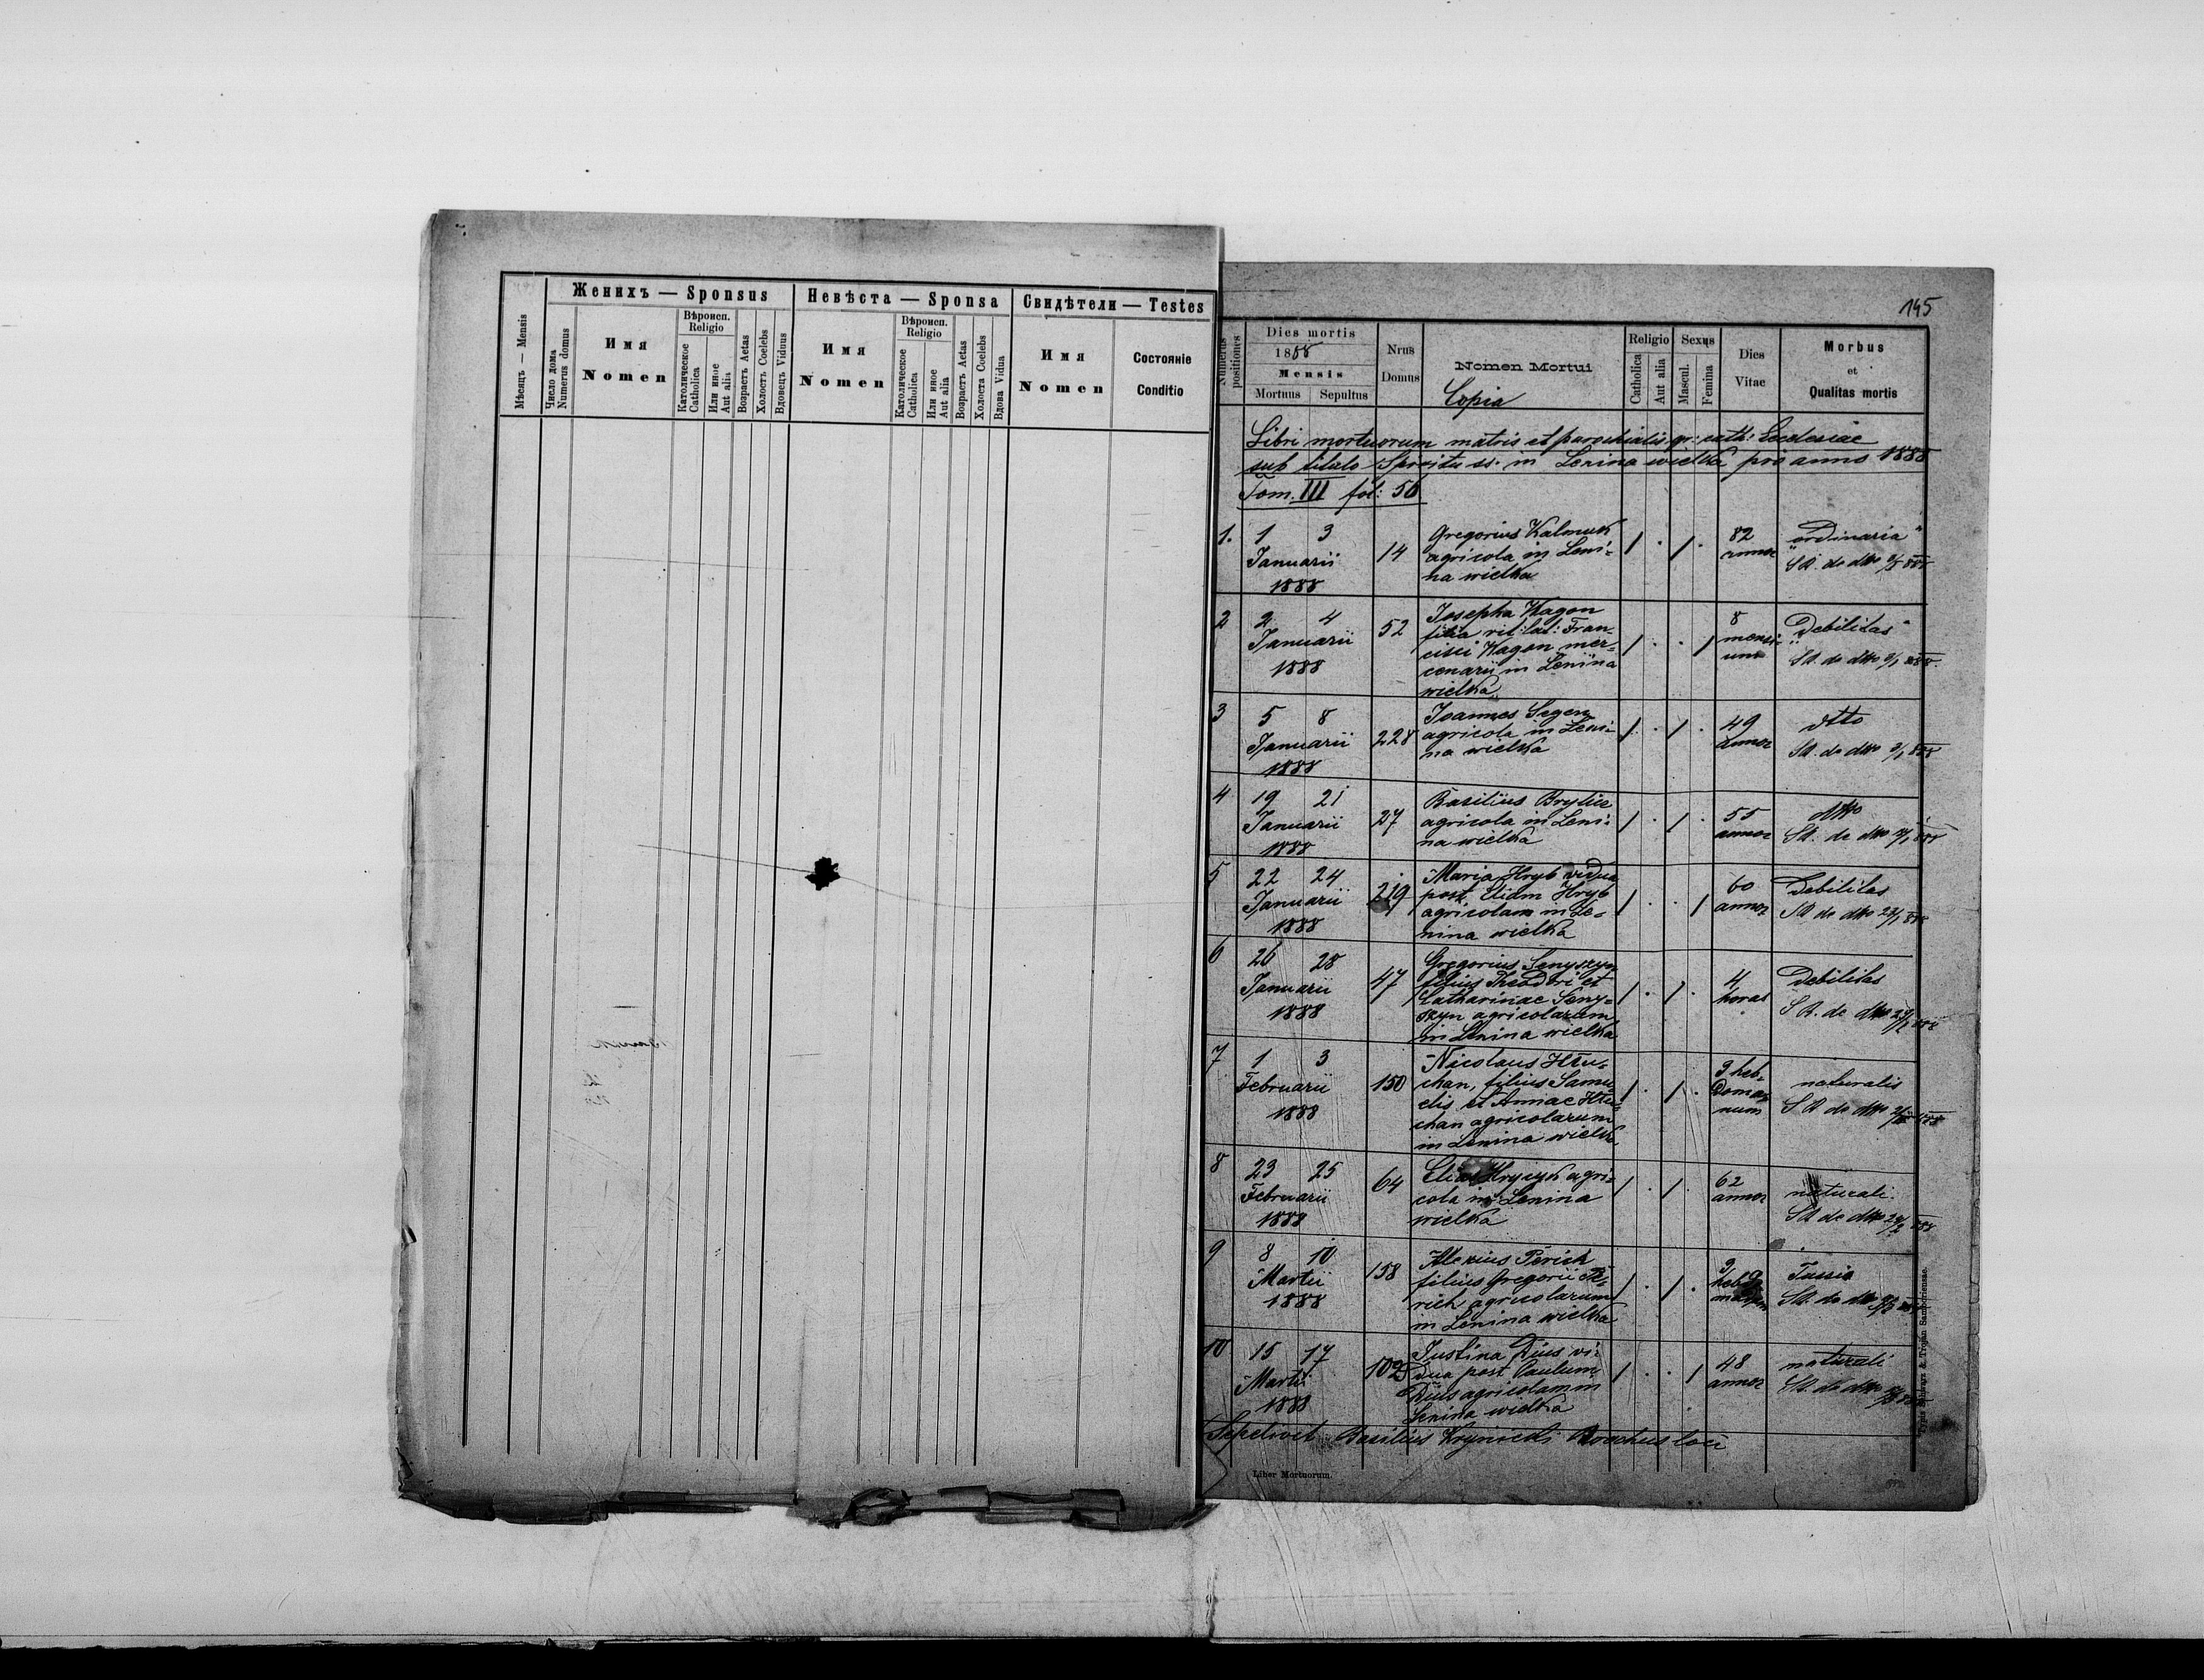 Женихъ — Sponsus
Невѣста — Sponsa
Свидѣтели — Testes
Мѣсяцъ — Mensis
Число дома
Numerus domus
Имя
Nomen
Вѣроисп.
Religio
Католическое
Catholica
Или иное
Aut alia
Возрастъ Aetas
Холостъ Coelebs
Вдовецъ Viduus
Имя
Nomen
Вѣроисп.
Religio
Католическое
Catholica
Или иное
Aut alia
Возрастъ Aetas
Холоста Coelebs
Вдова Vidua
Имя
Nomen
Состояніе
Conditio
145
Numerus
positiones
Dies mortis
1888
Mensis
Mortuus Sepultus
Nrus
Domus
Nomen Mortui
Copia
Religio
Catholica
Aut alia
Sexus
Mascul.
Femina
Dies
Vitae
Morbus
et
Qualitas mortis
Libri mortuorum matris et parochialis gr: cath: Ecclesiae
sub titulo Spiritu ss. in Lenina wielka pro anno 1888
Tom. III fol: 56
1. 1 3
Januarii
1888
14
Gregorius Kalmuk
agricola in Leni-
na wielka
82
annor
"ordinaria"
SA. de dtto
2 2 4
Januarii
1888
52
Josepha Wagon
filia rit: lat: Fran-
cisci Wagon mer-
cenarii in Lenina
wielka
8
mensi-
um
"Debilitas"
SA. de dtto
3 5 8
Januarii
1888
228
Joannes Segen
agricola in Leni-
na wielka
49
annor
dtto
SA. de dtto
4 19 21
Januarii
1888
27
Basilius Brylia
agricola in Leni-
na wielka
55
annor
dtto
SA. de dtto
5 22 24
Januarii
1888
219
Maria Hryb vidua
post Eliam Hryb
agricolam in Le-
nina wielka
60
annor
Debilitas
SA de dtto 23/1 888
6 26 28
Januarii
1888
47
Gregorius Senyszyn
filius Theodori et
Catharinae Seny-
szyn agricolarum
in Lenina wielka
4
horas
Debilitas
SA. de dtto
7 1 3
Februarii
1888
150
Nicolaus Hru-
chan, filius Samu-
elis et Annae Hru-
chan agricolarum
in Lenina wielka
3 heb-
doma-
num
naturalis
SA de dtto
8 23 25
Februarii
1888
64
Elias Hrycyk agri-
cola in Lenina
wielka
62
annor
naturali
SA de dtto 24/2 888
9 8 10
Martii
1888
158
Alexius Perich
filius Gregorii Pe-
rich agricolarum
in Lenina wielka
Tussis
SA. de dtto
10 15 17
Martii
1888
102
Justina Dius vi-
dua post Paulum
Dius agricolam in
Lenina wielka
48
annor
naturali
SA. de dtto
Sepelivit Basilius Krynicki Parochus loci
Liber Mortuorum.